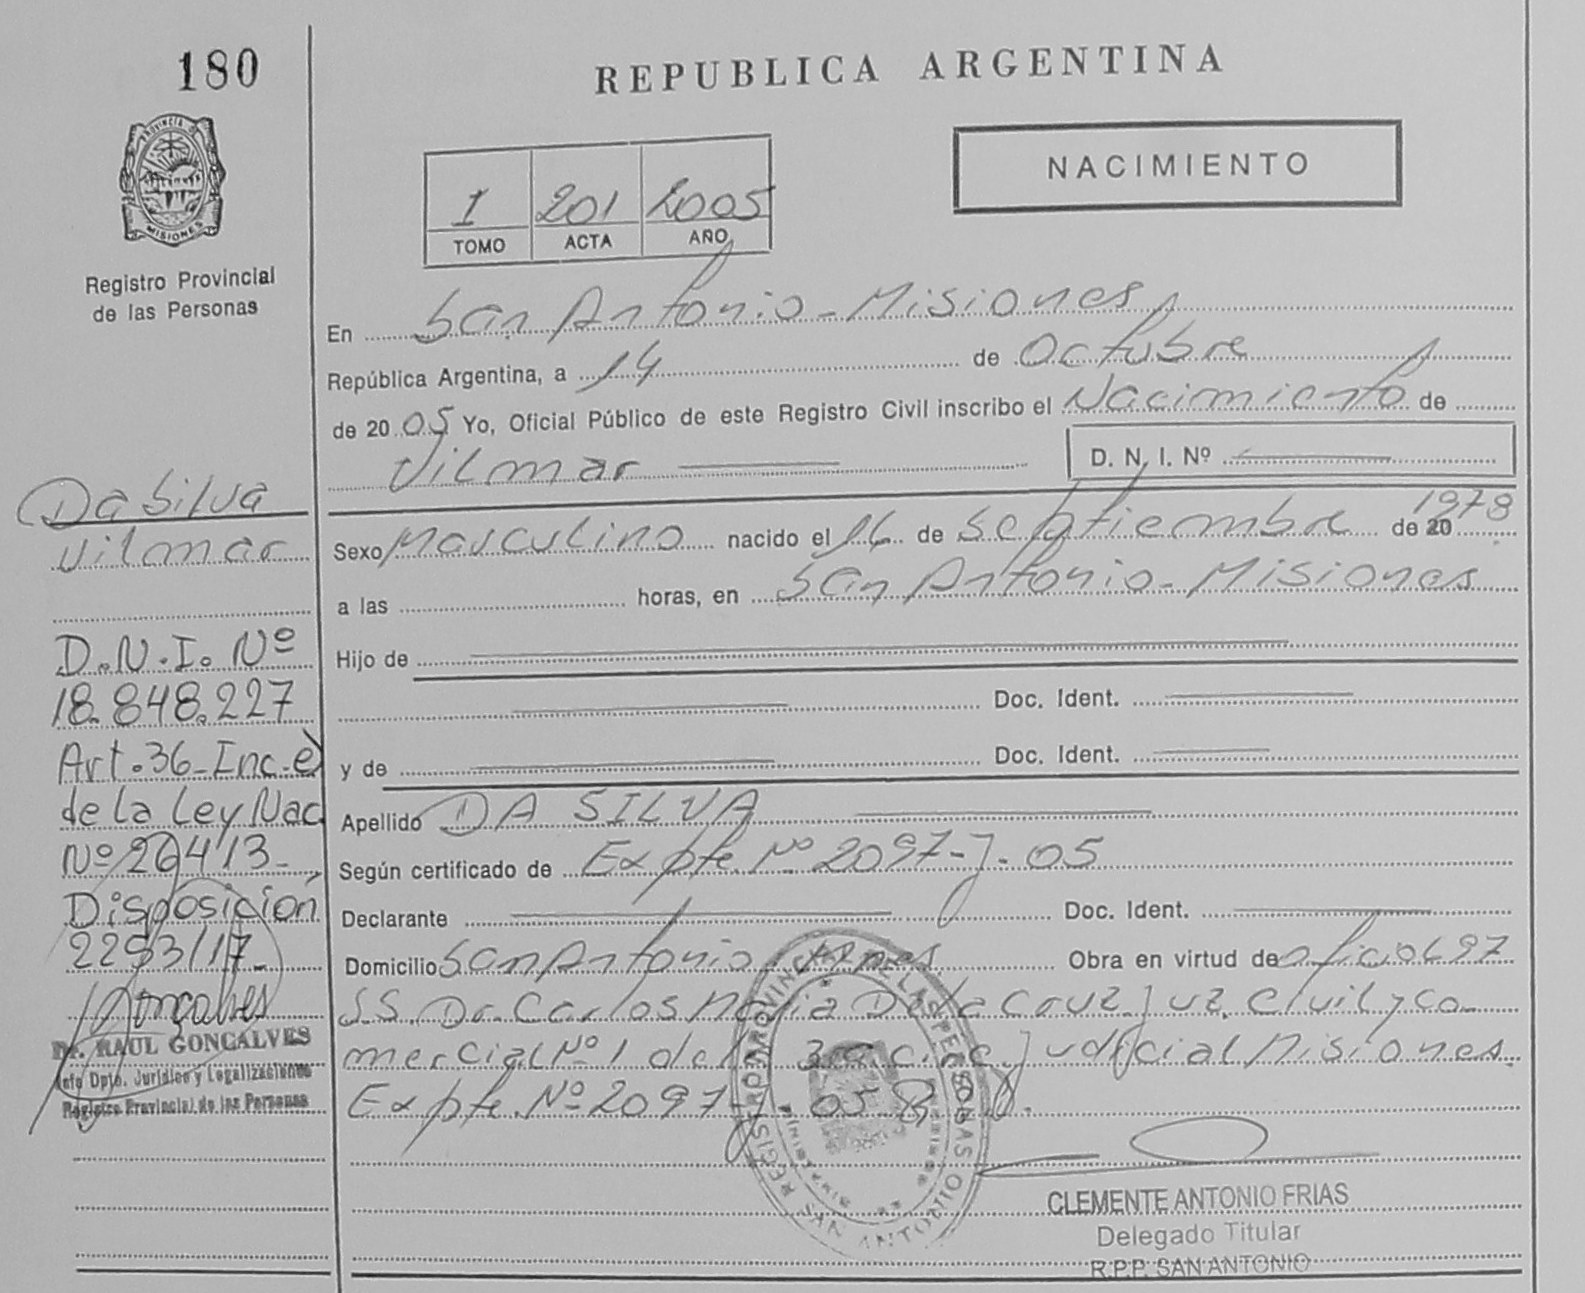 180
REPUBLICA ARGENTINA
PROVINCIA DE
MISIONES
Registro Provincial
de las Personas
NACIMIENTO
I 201 2005
TOMO ACTA AÑO
En San Antonio - Misiones
República Argentina, a 14 de Octubre
de 2005 Yo, Oficial Público de este Registro Civil inscribo el Nacimiento de
Vilmar D. N. I. Nº
Da Silva
Vilmar
D.N.I. Nº
18.848.227
Art. 36 - Inc. e)
de la Ley Nac
Nº 26413 -
Disposición
2293/17 -
Gonçalves
Dr. RAUL GONCALVES
Jefe Dpto. Jurídico y Legalizaciones
Registro Provincial de las Personas
Sexo Masculino nacido el 16 de Septiembre de 20 1978
a las horas, en San Antonio - Misiones
Hijo de
Doc. Ident.
y de Doc. Ident.
Apellido DA SILVA
Según certificado de Expte. Nº 2097-J-05
Declarante Doc. Ident.
Domicilio San Antonio Mnes Obra en virtud de oficio 697
S.S. Dr. Carlos María De la Cruz Juz. Civil y Co-
mercial Nº 1 de la 3ra Circ. Judicial Misiones
Expte. Nº 2097-J-05
REGISTRO PROVINCIAL DE LAS PERSONAS
SAN ANTONIO
CLEMENTE ANTONIO FRIAS
Delegado Titular
R.P.P. SAN ANTONIO